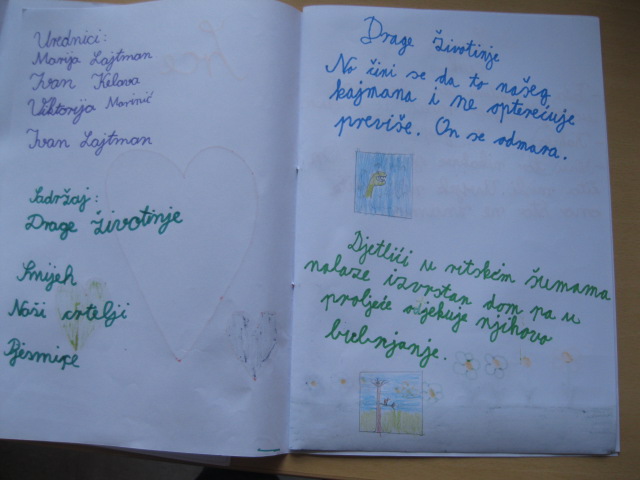 Urednici:
Marija Lajtman
Ivan Kelava
Viktorija Marinić
Ivan Lajtman
Sadržaj:
Drage životinje
Smijeh
Naši crtelji
Pjesmice
Drage životinje
No čini se da to našeg
kajmana i ne opterećuje
previše. On se odmara.
Djetlići u ritskim šumama
nalaze izvrstan dom pa u
proljeće odjekuje njihovo
bubnjanje.